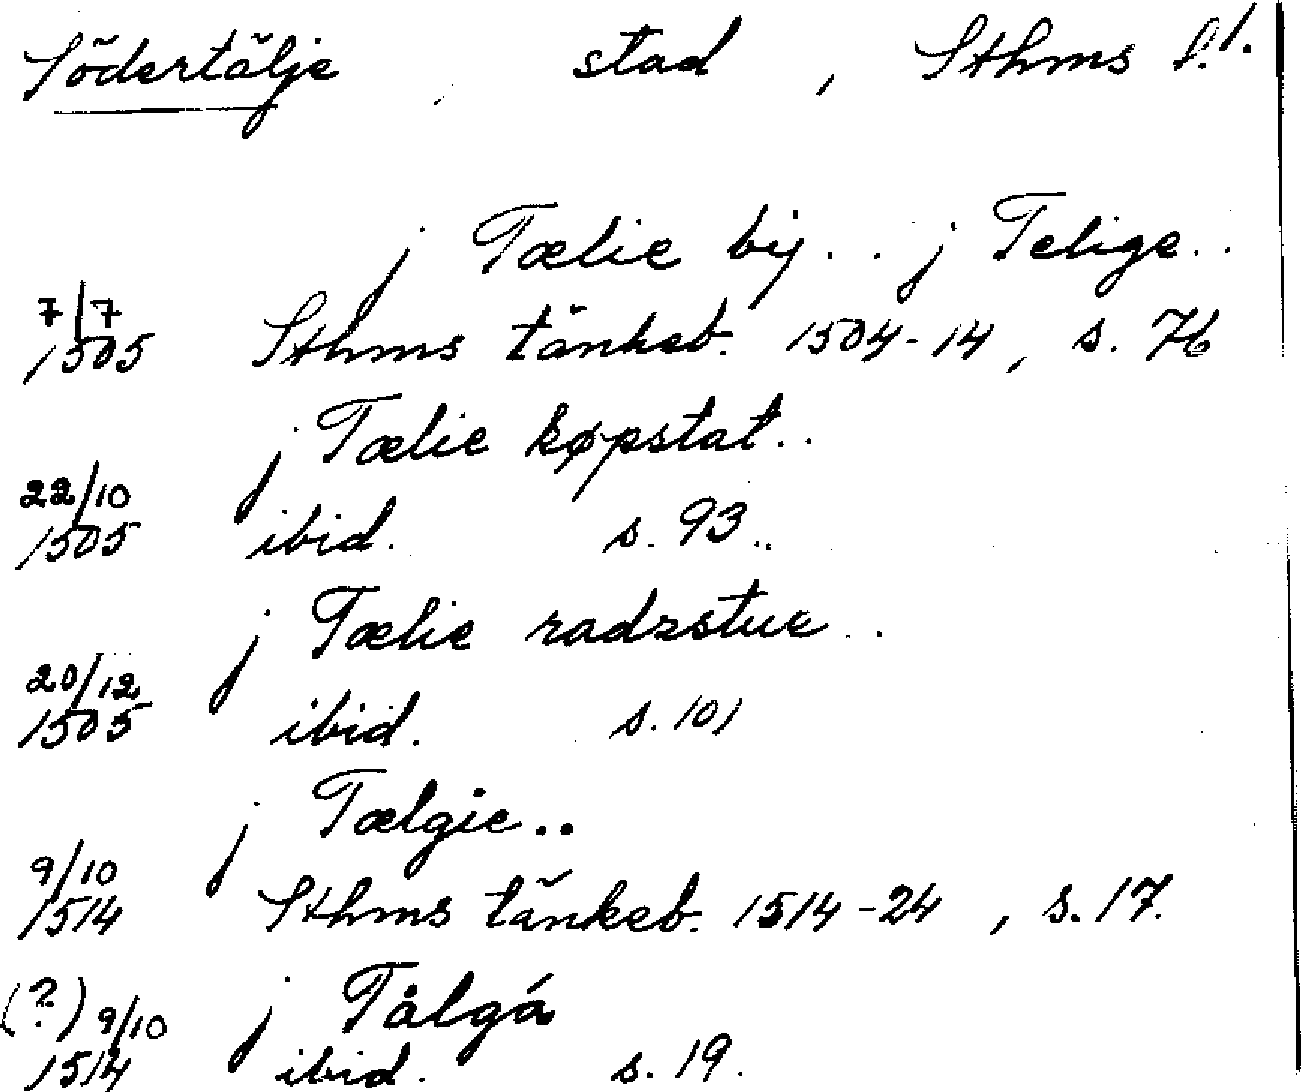 Södertälje, stad, Sthms l.
j Tælie by.. j Telige..
7/7
1505 Sthms tänkeb. 1504-14, s. 76
j Tælie køpstat..
22/10
1505 ibid. s. 93..
j Tælie radzstue..
20/12
1505 ibid. s. 101
j Tælgie..
9/10
1514 Sthms tänkeb. 1514-24, s. 17.
(?) 9/10 j Tålgá
1514 ibid. s. 19.